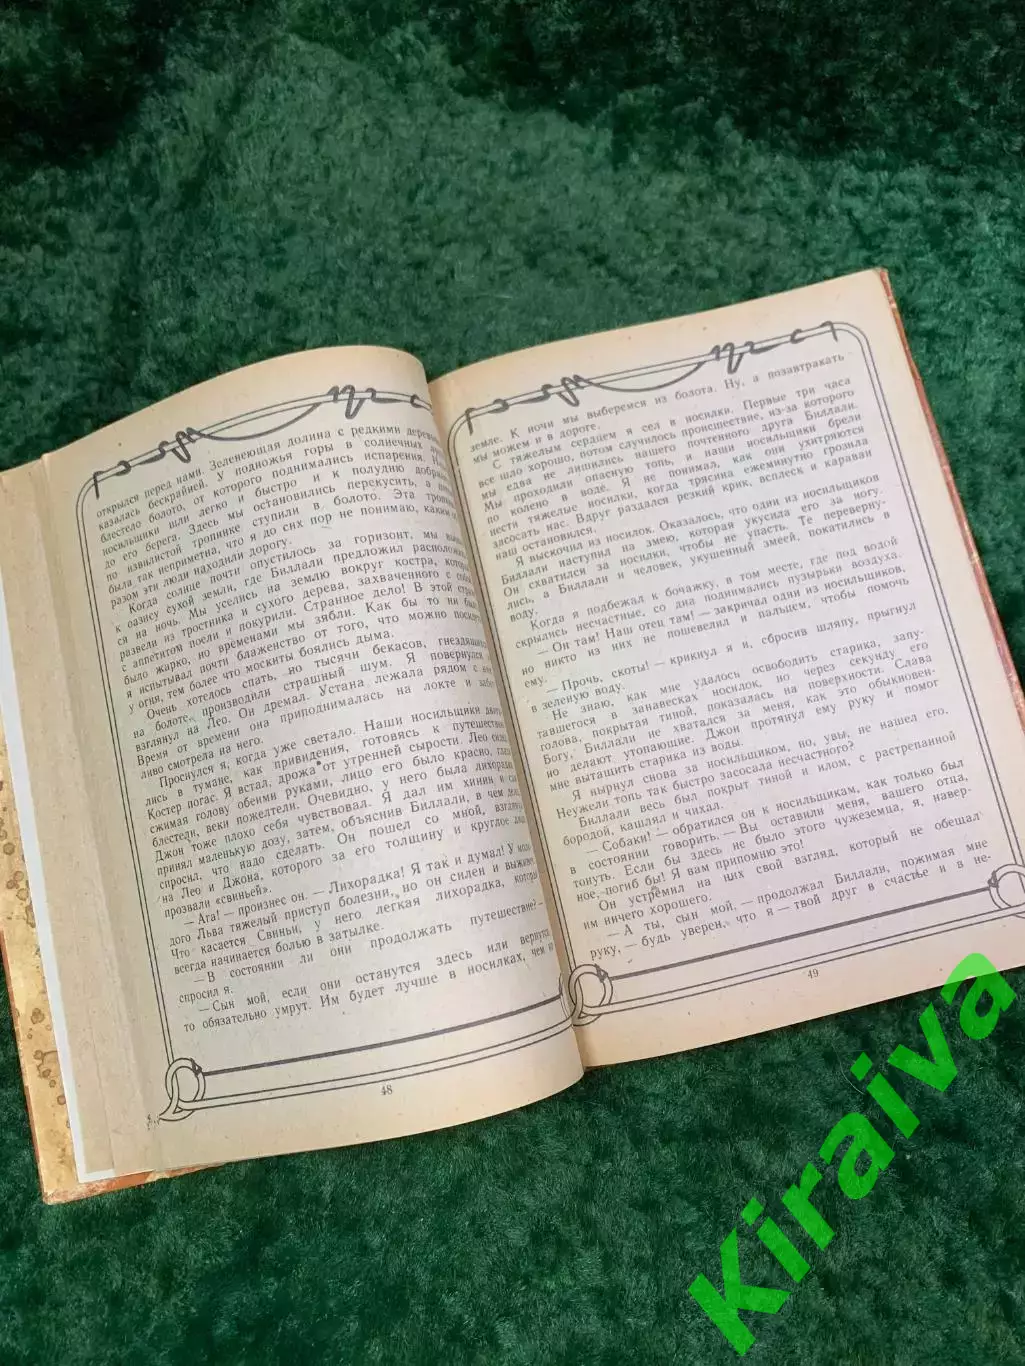 открылся перед нами. Зеленеющая долина с редкими деревьями
казалась бескрайней. У подножья горы в солнечных
блестело болото, от которого поднимались испарения.
носильщики шли легко и быстро и к полудню
до его берега. Здесь мы остановились перекусить, а
по извилистой тропинке ступили в болото. Эта
была так неприметна, что я до сих пор не понимаю, каким
разом эти люди находили дорогу.
Когда солнце почти опустилось за горизонт, мы
к оазису сухой земли, где Биллали предложил
ся на ночь. Мы уселись на землю вокруг костра,
развели из тростника и сухого дерева, захваченного с собой
с аппетитом поели и покурили. Странное дело! В этой
было жарко, но временами мы зябли. Как бы то ни
я испытывал почти блаженство от того, что можно
у огня, тем более что москиты боялись дыма.
Очень хотелось спать, но тысячи бекасов, гнездящихся
на болоте, производили страшный шум. Я повернулся
взглянул на Лео. Он дремал. Устана лежала рядом с
Время от времени она приподнималась на локте и
ливо смотрела на него.
Проснулся я, когда уже светало. Наши носильщики
лись в тумане, как привидения, готовясь к путешествию
Костер погас. Я встал, дрожа от утренней сырости. Лео
сжимая голову обеими руками, лицо его было красно, глаза
блестели, веки пожелтели. Очевидно, у него была лихорадка
Джон тоже плохо себя чувствовал. Я дал им хинин и
принял маленькую дозу, затем, объяснив Биллали, в чем дело
спросил, что надо сделать. Он пошел со мной,
на Лео и Джона, которого за его толщину и круглое
прозвали «свиньей».
— Ага! — произнес он. — Лихорадка! Я так и думал! У
дого Льва тяжелый приступ болезни, но он силен и
Что касается Свиньи, у него легкая лихорадка,
всегда начинается болью в затылке.
— В состоянии ли они продолжать путешествие? —
спросил я.
— Сын мой, если они останутся здесь или вернутся
то обязательно умрут. Им будет лучше в носилках, чем
48
земле. К ночи мы выберемся из болота. Ну, а позавтракать
мы можем и в дороге.
С тяжелым сердцем я сел в носилки. Первые три часа
все шло хорошо, потом случилось происшествие, из-за которого
мы едва не лишились нашего почтенного друга Биллали.
Мы проходили опасную топь, и наши носильщики брели
по колено в воде. Я не понимал, как они ухитряются
нести тяжелые носилки, когда трясина ежеминутно грозила
засосать нас. Вдруг раздался резкий крик, всплеск и караван
наш остановился.
Я выскочил из носилок. Оказалось, что один из носильщиков
Биллали наступил на змею, которая укусила его за ногу.
Он схватился за носилки, чтобы не упасть. Те переверну-
лись, а Биллали и человек, укушенный змеей, покатились в
воду.
Когда я подбежал к бочажку, в том месте, где под водой
скрылись несчастные, со дна поднимались пузырьки воздуха.
— Он там! Наш отец там! — закричал один из носильщиков,
но никто из них не пошевелил и пальцем, чтобы помочь
ему.
— Прочь, скоты! — крикнул я и, сбросив шляпу, прыгнул
в зеленую воду.
Не знаю, как мне удалось освободить старика, запу-
тавшегося в занавесках носилок, но через секунду его
голова, покрытая тиной, показалась на поверхности. Слава
Богу, Биллали не хватался за меня, как это обыкновен-
но делают утопающие. Джон протянул ему руку и помог
мне вытащить старика из воды.
Я нырнул снова за носильщиком, но, увы, не нашел его.
Неужели топь так быстро засосала несчастного?
Биллали весь был покрыт тиной и илом, с растрепанной
бородой, кашлял и чихал.
— Собаки! — обратился он к носильщикам, как только был
в состоянии говорить. — Вы оставили меня, вашего отца,
тонуть. Если бы здесь не было этого чужеземца, я, навер-
ное, погиб бы! Я вам припомню это!
Он устремил на них свой взгляд, который не обещал
им ничего хорошего.
— А ты, сын мой, — продолжал Биллали, пожимая мне
руку, — будь уверен, что я — твой друг в счастье и в не-
49
Kiraiva